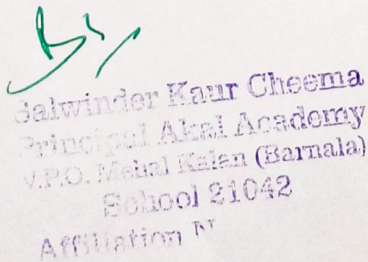 Balwinder Kaur Cheema
Principal Akal Academy
V.P.O. Mahal Kalan (Barnala)
School 21042
Affiliation N